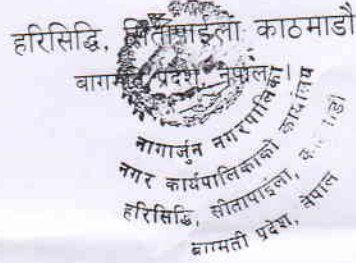 हरिसिद्धि, सीतापाईला काठमाडौं
बागमती प्रदेश, नेपाल।
नागार्जुन नगरपालिका
नगर कार्यपालिकाको कार्यालय
हरिसिद्धि, सीतापाइला,
बागमती प्रदेश, नेपाल